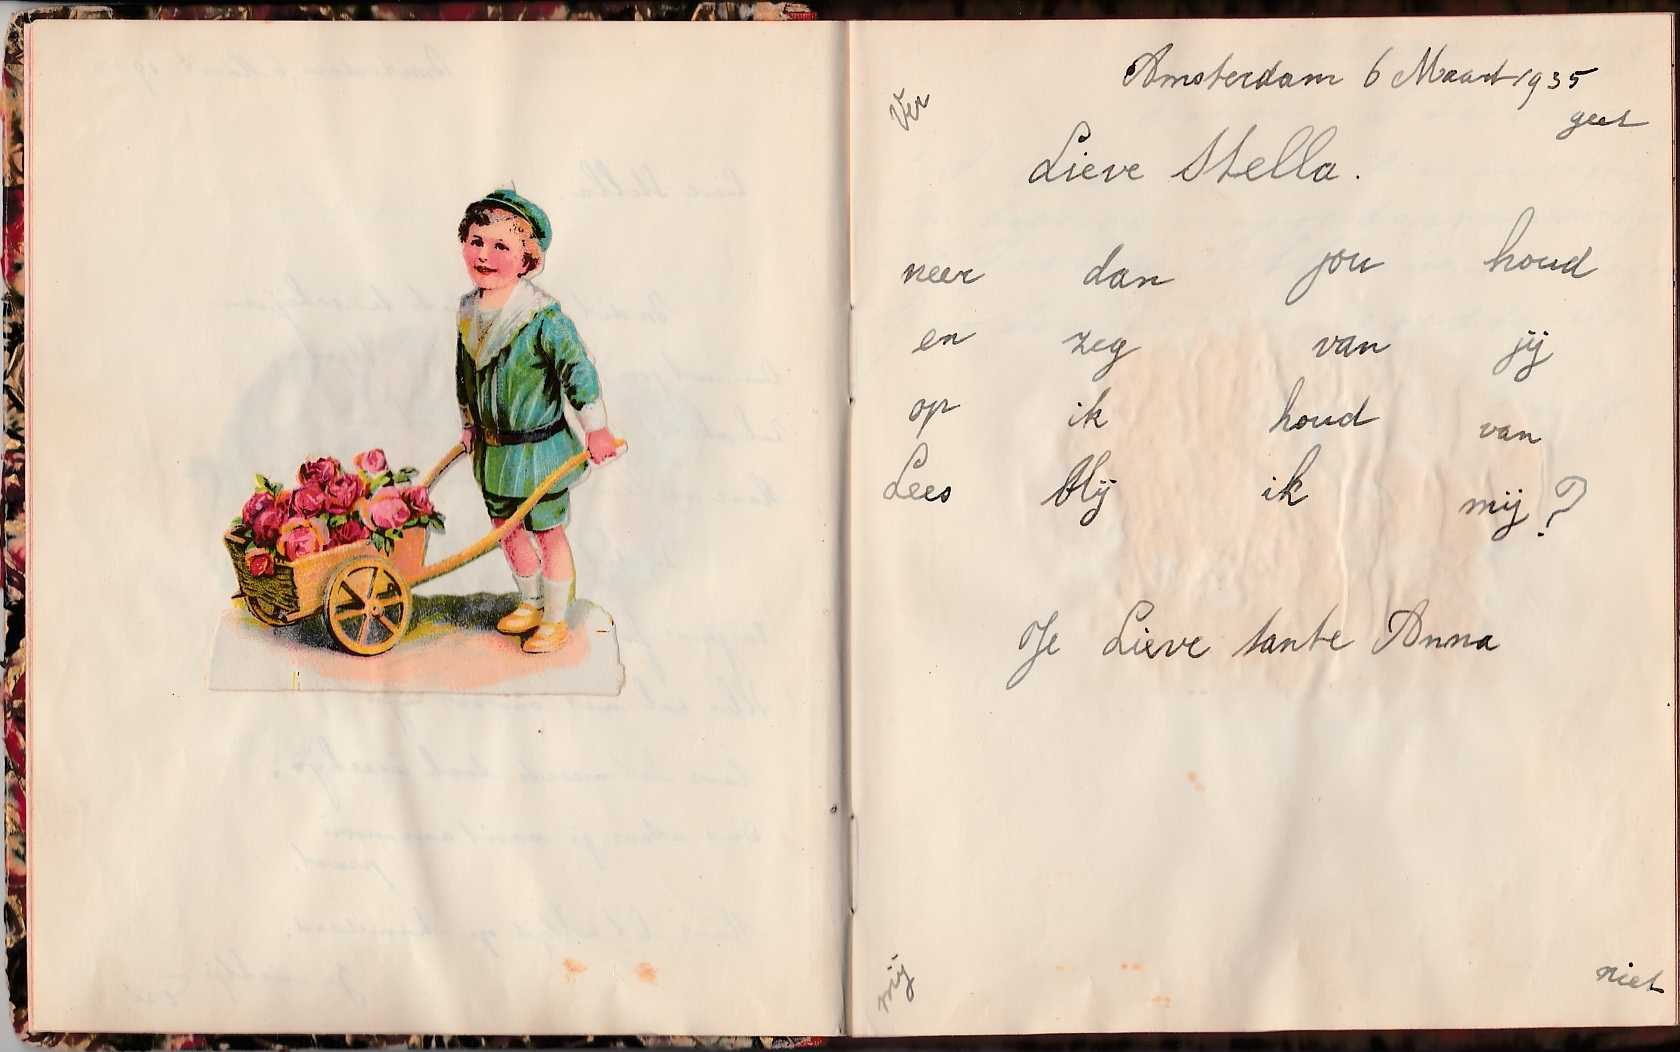 Amsterdam 6 Maart 1935
Ver
geet
Lieve Stella.
neer dan jou houd
en zeg van jij
op ik houd van
Lees blij ik mij?
Je Lieve tante Anna
mij
niet